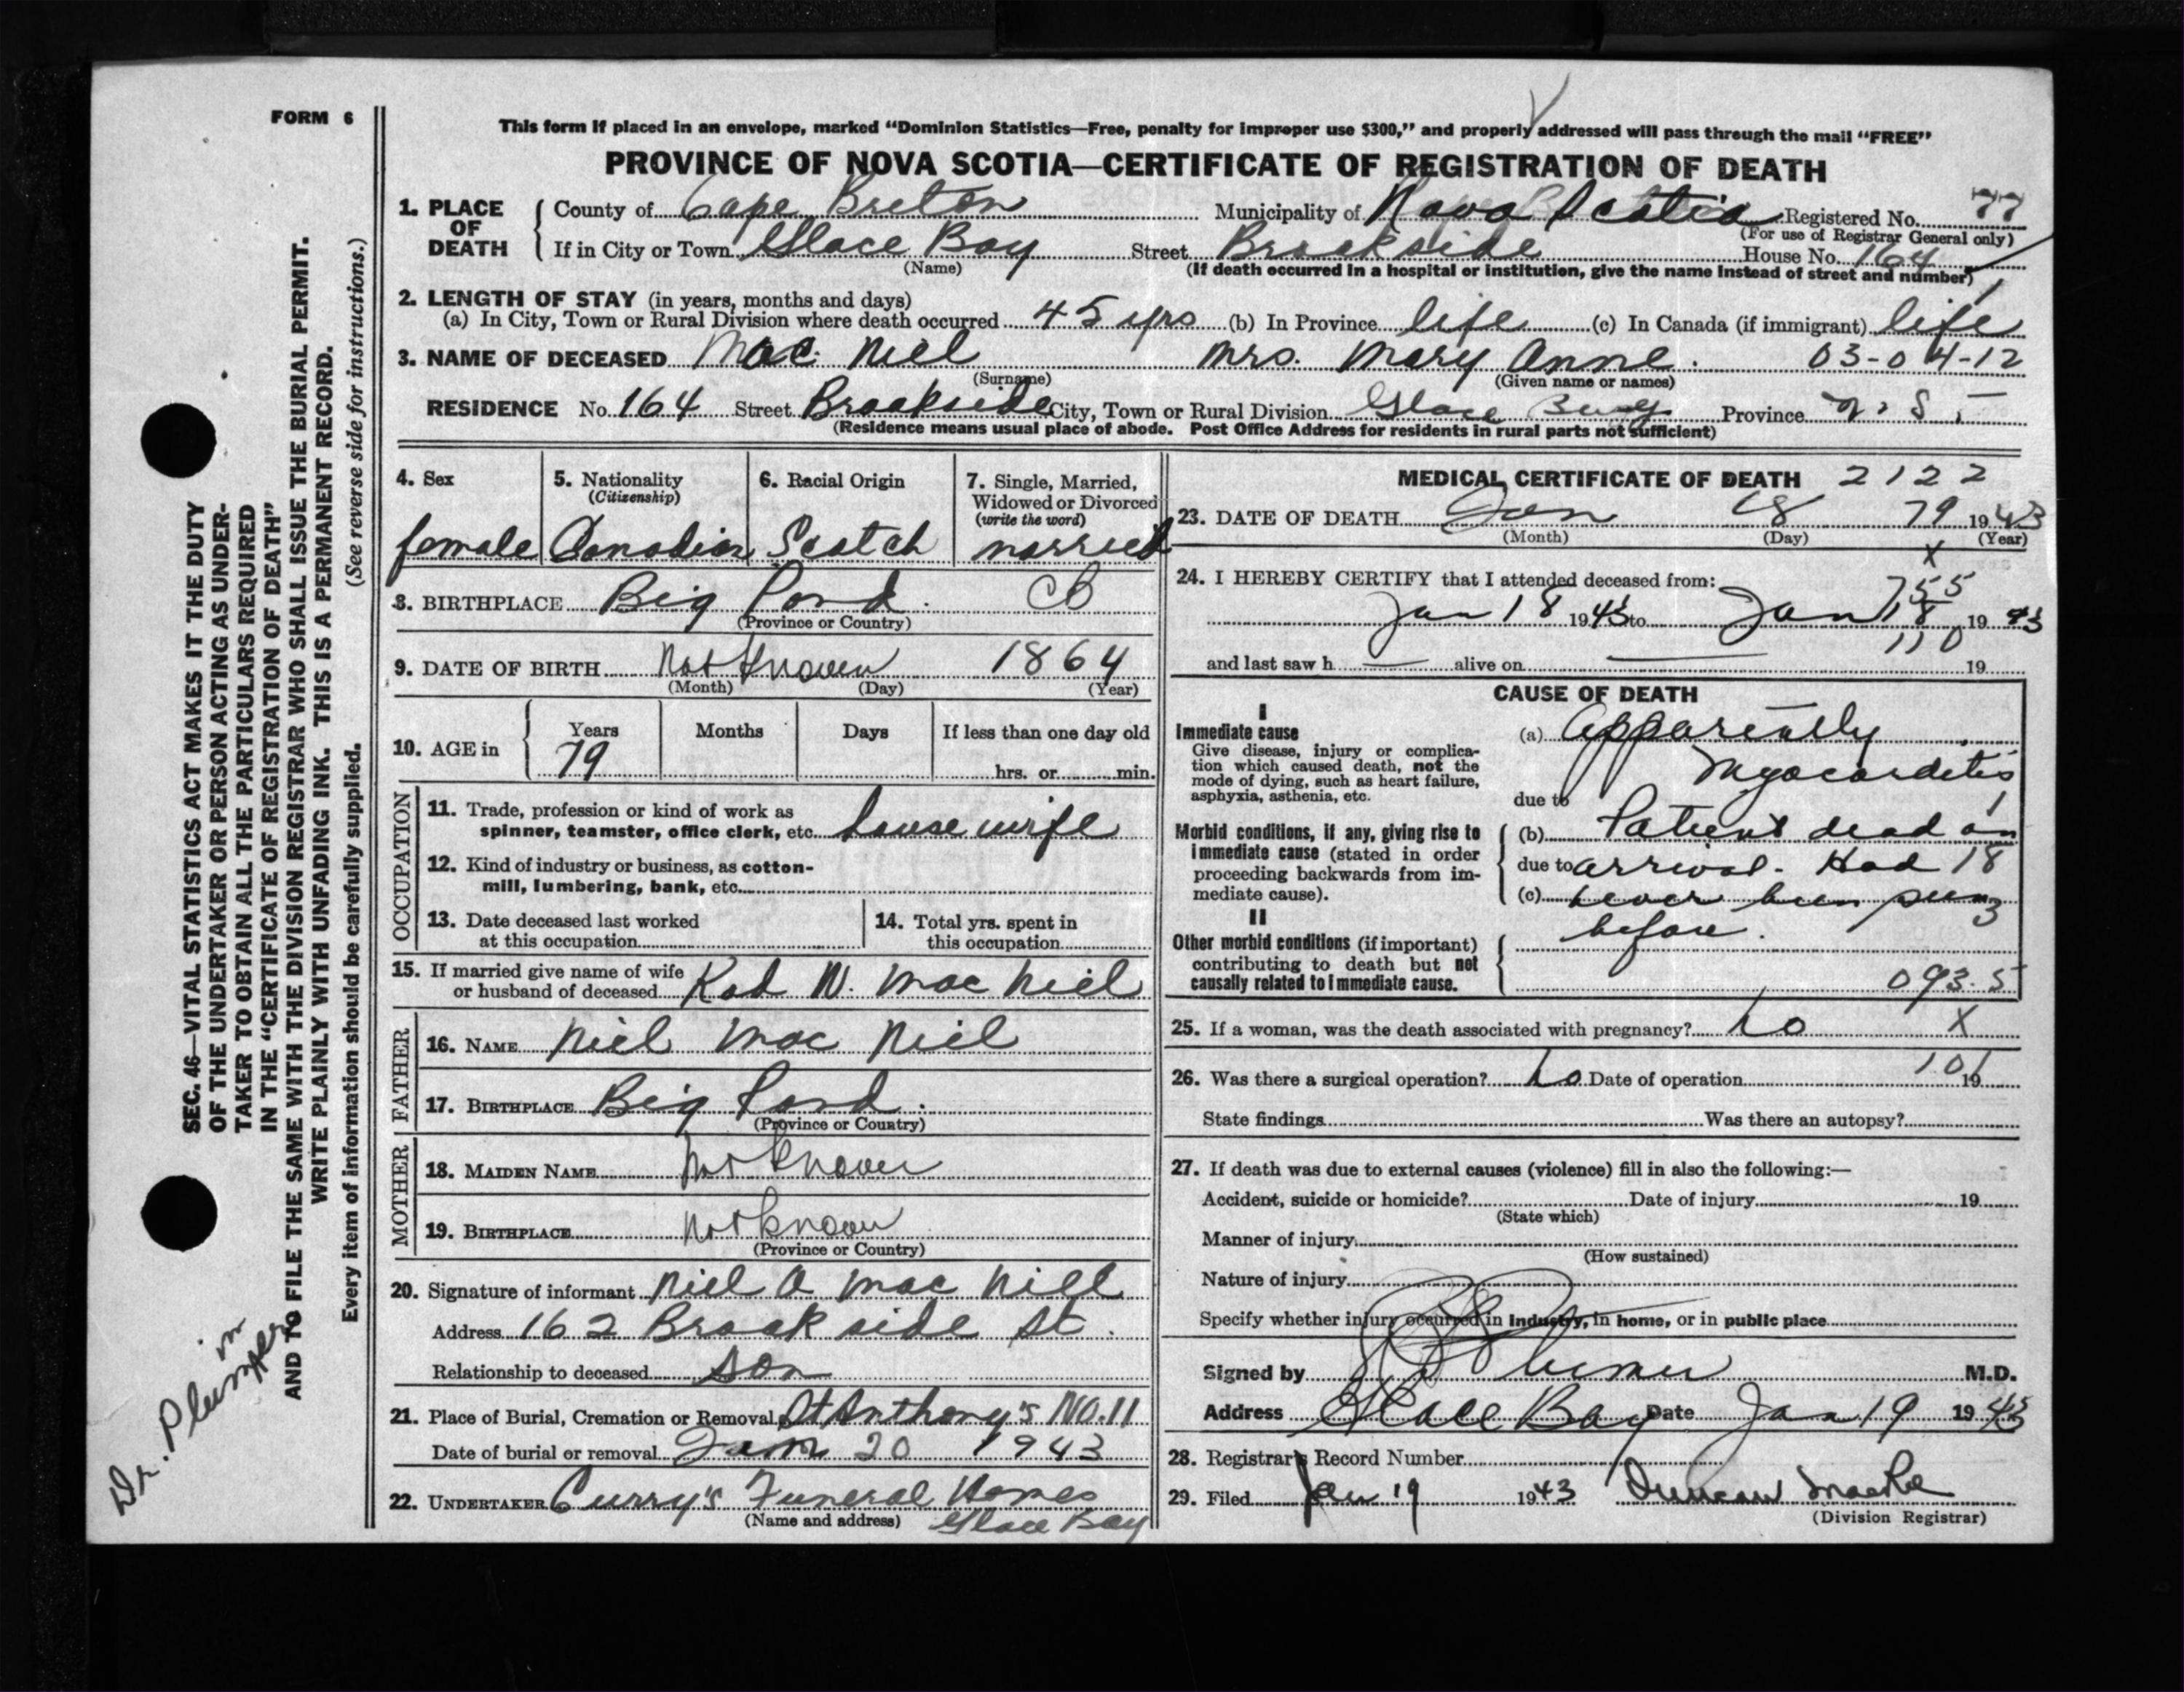 FORM 6
This form if placed in an envelope, marked “Dominion Statistics—Free, penalty for improper use $300,” and properly addressed will pass through the mail “FREE”
PROVINCE OF NOVA SCOTIA—CERTIFICATE OF REGISTRATION OF DEATH
1. PLACE OF DEATH County of Cape Breton Municipality of Nova Scotia Registered No. 77
(For use of Registrar General only)
If in City or Town Glace Bay Street Brookside House No. 164
(Name) (If death occurred in a hospital or institution, give the name instead of street and number)
2. LENGTH OF STAY (in years, months and days)
(a) In City, Town or Rural Division where death occurred 45 yrs (b) In Province life (c) In Canada (if immigrant) life
3. NAME OF DECEASED Mac Niel Mrs. Mary Anne. 03-04-12
(Surname) (Given name or names)
RESIDENCE No. 164 Street Brookside City, Town or Rural Division Glace Bay Province N. S.
(Residence means usual place of abode. Post Office Address for residents in rural parts not sufficient)
4. Sex 5. Nationality (Citizenship) 6. Racial Origin 7. Single, Married, Widowed or Divorced (write the word)
female Canadian Scotch married
8. BIRTHPLACE Big Pond. CB
(Province or Country)
9. DATE OF BIRTH Not Known 1864
(Month) (Day) (Year)
10. AGE in Years Months Days If less than one day old
79 hrs. or min.
OCCUPATION
11. Trade, profession or kind of work as
spinner, teamster, office clerk, etc. house wife
12. Kind of industry or business, as cotton-
mill, lumbering, bank, etc.
13. Date deceased last worked
at this occupation
14. Total yrs. spent in
this occupation
15. If married give name of wife
or husband of deceased Rod N. Mac Niel
FATHER
16. NAME Niel Mac Niel
17. BIRTHPLACE Big Pond.
(Province or Country)
MOTHER
18. MAIDEN NAME Not Known
19. BIRTHPLACE Not Known
(Province or Country)
20. Signature of informant Niel A Mac Niel
Address 162 Brook side St.
Relationship to deceased son
21. Place of Burial, Cremation or Removal St Anthony's NO. 11
Date of burial or removal Jan 20 1943
22. UNDERTAKER Curry's Funeral Homes
(Name and address) Glace Bay
MEDICAL CERTIFICATE OF DEATH 2122
23. DATE OF DEATH Jan 18 79 1943
(Month) (Day) (Year)
x
24. I HEREBY CERTIFY that I attended deceased from: 755
Jan 18 1943 to Jan 18 1943
110
and last saw h alive on 19
CAUSE OF DEATH
I
Immediate cause
Give disease, injury or complica-
tion which caused death, not the
mode of dying, such as heart failure,
asphyxia, asthenia, etc.
(a) Apparently
Myocarditis
due to 1
Morbid conditions, if any, giving rise to
immediate cause (stated in order
proceeding backwards from im-
mediate cause).
(b) Patient dead on
due to arrival. Had 18
(c) never been seen 3
before.
II
Other morbid conditions (if important)
contributing to death but not
causally related to immediate cause.
093.5
25. If a woman, was the death associated with pregnancy? No X
26. Was there a surgical operation? No Date of operation 19
101
State findings Was there an autopsy?
27. If death was due to external causes (violence) fill in also the following:—
Accident, suicide or homicide? Date of injury 19
(State which)
Manner of injury
(How sustained)
Nature of injury
Specify whether injury occurred in industry, in home, or in public place
Signed by M.D.
Address Glace Bay Date Jan 19 1943
28. Registrar's Record Number
29. Filed Jan 19 1943 Duncan
(Division Registrar)
SEC. 46—VITAL STATISTICS ACT MAKES IT THE DUTY
OF THE UNDERTAKER OR PERSON ACTING AS UNDER-
TAKER TO OBTAIN ALL THE PARTICULARS REQUIRED
IN THE “CERTIFICATE OF REGISTRATION OF DEATH”
AND TO FILE THE SAME WITH THE DIVISION REGISTRAR WHO SHALL ISSUE THE BURIAL PERMIT.
WRITE PLAINLY WITH UNFADING INK. THIS IS A PERMANENT RECORD.
Every item of information should be carefully supplied. (See reverse side for instructions.)
Dr.